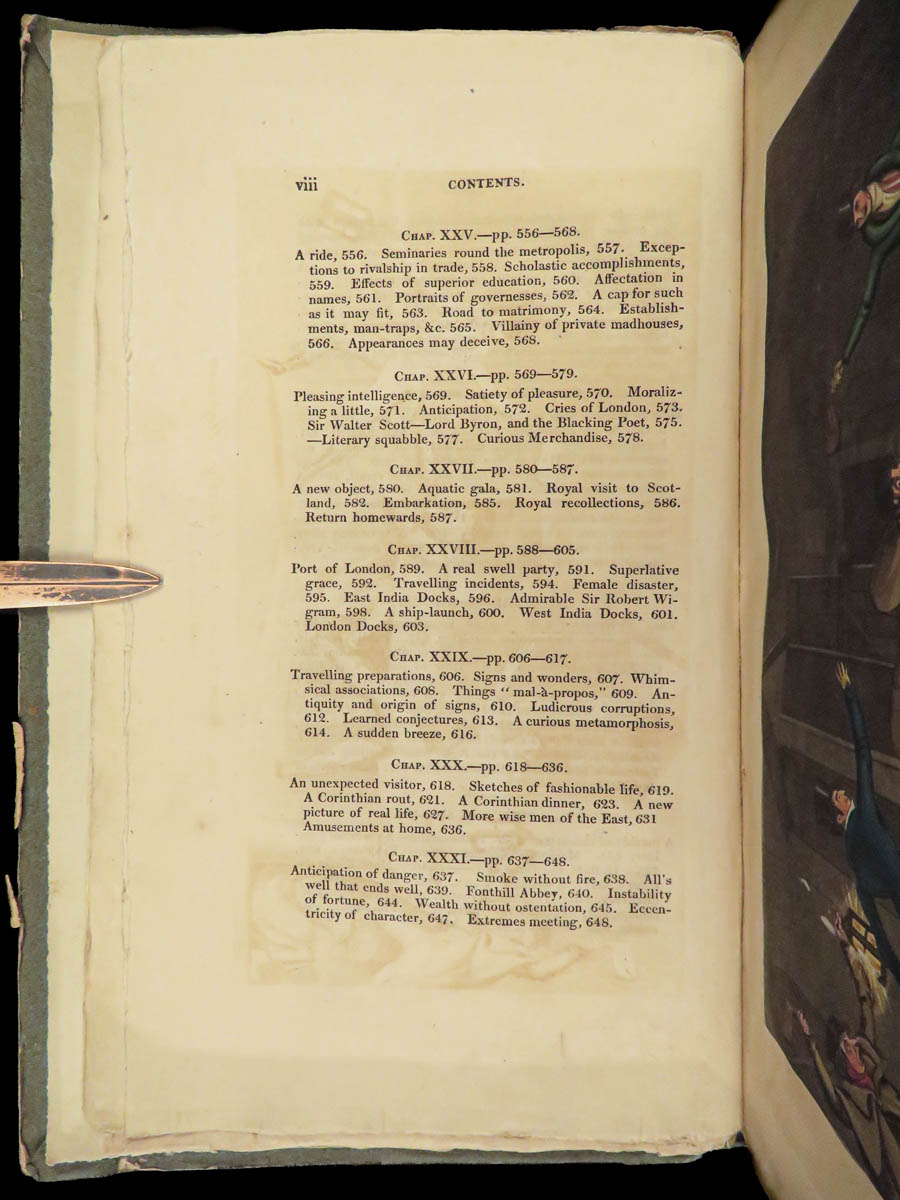 viii
CONTENTS.
CHAP. XXV.—pp. 556—568.
A ride, 556. Seminaries round the metropolis, 557. Excep-
tions to rivalship in trade, 558. Scholastic accomplishments,
559. Effects of superior education, 560. Affectation in
names, 561. Portraits of governesses, 562. A cap for such
as it may fit, 563. Road to matrimony, 564. Establish-
ments, man-traps, &c. 565. Villainy of private madhouses,
566. Appearances may deceive, 568.
CHAP. XXVI.—pp. 569—579.
Pleasing intelligence, 569. Satiety of pleasure, 570. Moraliz-
ing a little, 571. Anticipation, 572. Cries of London, 573.
Sir Walter Scott—Lord Byron, and the Blacking Poet, 575.
—Literary squabble, 577. Curious Merchandise, 578.
CHAP. XXVII.—pp. 580—587.
A new object, 580. Aquatic gala, 581. Royal visit to Scot-
land, 582. Embarkation, 585. Royal recollections, 586.
Return homewards, 587.
CHAP. XXVIII.—pp. 588—605.
Port of London, 589. A real swell party, 591. Superlative
grace, 592. Travelling incidents, 594. Female disaster,
595. East India Docks, 596. Admirable Sir Robert Wi-
gram, 598. A ship-launch, 600. West India Docks, 601.
London Docks, 603.
CHAP. XXIX.—pp. 606—617.
Travelling preparations, 606. Signs and wonders, 607. Whim-
sical associations, 608. Things "mal-à-propos," 609. An-
tiquity and origin of signs, 610. Ludicrous corruptions,
612. Learned conjectures, 613. A curious metamorphosis,
614. A sudden breeze, 616.
CHAP. XXX.—pp. 618—636.
An unexpected visitor, 618. Sketches of fashionable life, 619.
A Corinthian rout, 621. A Corinthian dinner, 623. A new
picture of real life, 627. More wise men of the East, 631
Amusements at home, 636.
CHAP. XXXI.—pp. 637—648.
Anticipation of danger, 637. Smoke without fire, 638. All's
well that ends well, 639. Fonthill Abbey, 640. Instability
of fortune, 644. Wealth without ostentation, 645. Eccen-
tricity of character, 647. Extremes meeting, 648.